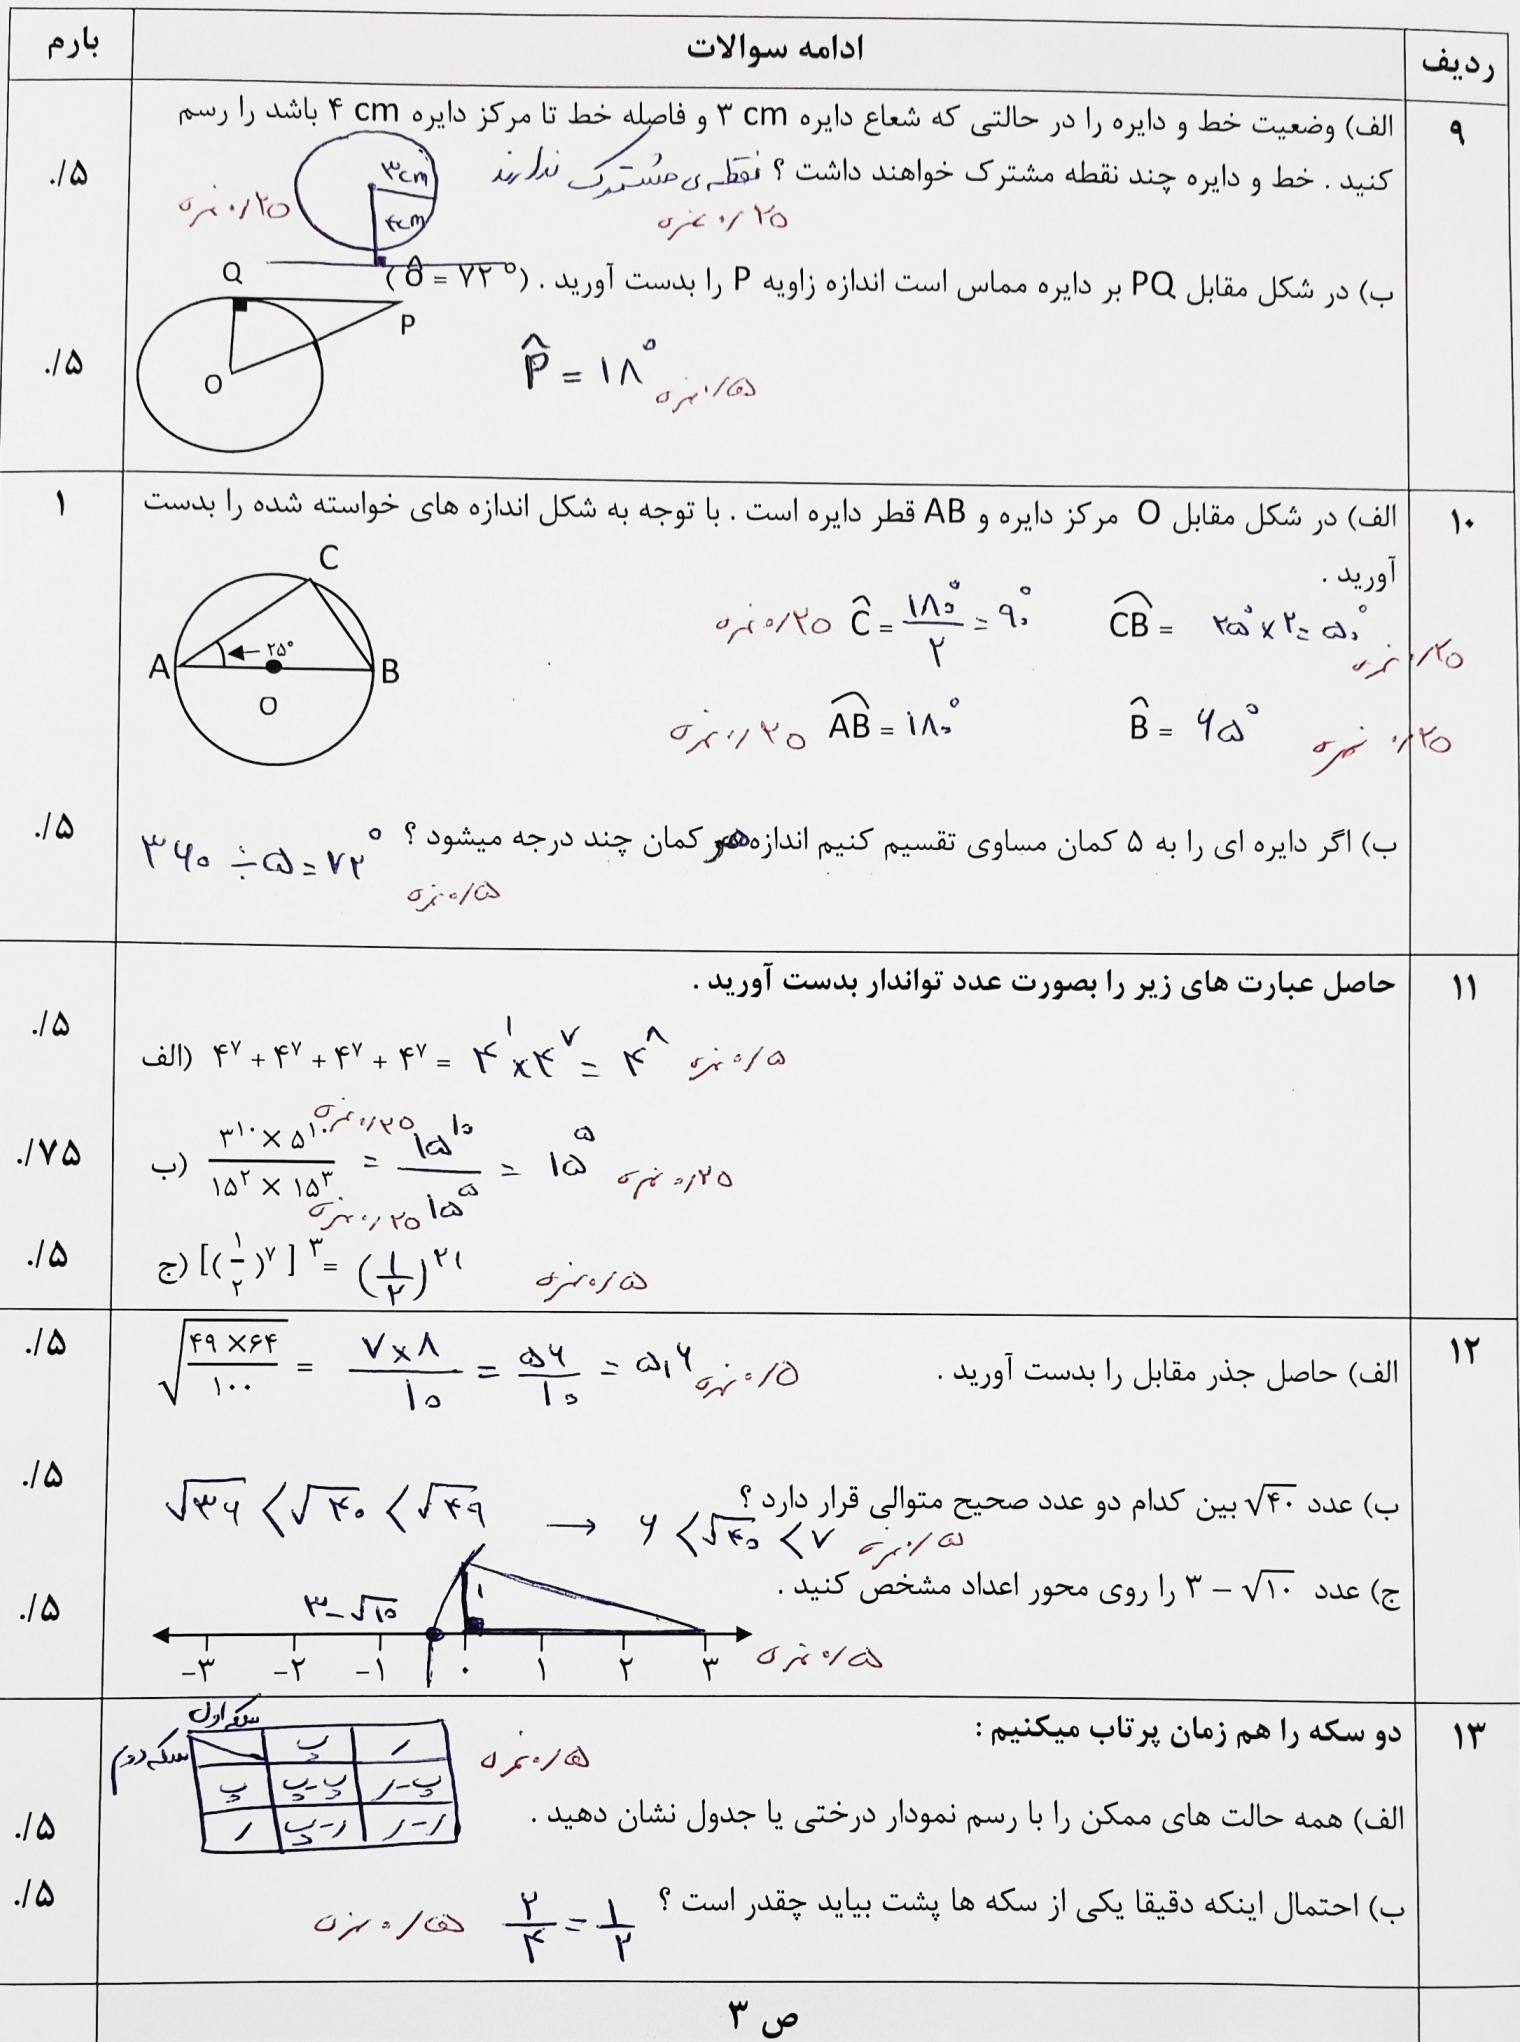 ردیف ادامه سوالات بارم
۹ الف) وضعیت خط و دایره را در حالتی که شعاع دایره ۳ cm و فاصله خط تا مرکز دایره ۴ cm باشد را رسم
کنید . خط و دایره چند نقطه مشترک خواهند داشت ؟ نقطه ی مشترک ندارند ۰/۵
۰/۲۵ نمره ۳cm ۰/۲۵ نمره
۴cm
ب) در شکل مقابل PQ بر دایره مماس است اندازه زاویه P را بدست آورید . (Ô = ۷۲°)
Q P O
P̂ = ۱۸° ۰/۵ نمره ۰/۵
۱۰ الف) در شکل مقابل O مرکز دایره و AB قطر دایره است . با توجه به شکل اندازه های خواسته شده را بدست ۱
آورید .
C A B O ۲۵°
Ĉ = ۱۸۰°/۲ = ۹۰° ۰/۲۵ نمره CB = ۲۵° × ۲ = ۵۰° ۰/۲۵ نمره
AB = ۱۸۰° ۰/۲۵ نمره B̂ = ۶۵° ۰/۲۵ نمره
ب) اگر دایره ای را به ۵ کمان مساوی تقسیم کنیم اندازه هر کمان چند درجه میشود ؟ ۳۶۰ ÷ ۵ = ۷۲° ۰/۵
۰/۵ نمره
۱۱ حاصل عبارت های زیر را بصورت عدد تواندار بدست آورید .
الف) ۴⁷ + ۴⁷ + ۴⁷ + ۴⁷ = ۴¹ × ۴⁷ = ۴⁸ ۰/۵ نمره ۰/۵
ب) (۳¹⁰ × ۵¹⁰)/(۱۵² × ۱۵³) = ۱۵¹⁰/۱۵⁵ = ۱۵⁵ ۰/۲۵ نمره ۰/۲۵ نمره ۰/۲۵ نمره ۰/۷۵
ج) [(۱/۲)⁷]³ = (۱/۲)²¹ ۰/۵ نمره ۰/۵
۱۲ الف) حاصل جذر مقابل را بدست آورید . √(۴۹ × ۶۴/۱۰۰) = ۷ × ۸/۱۰ = ۵۶/۱۰ = ۵,۶ ۰/۵ نمره ۰/۵
ب) عدد √۴۰ بین کدام دو عدد صحیح متوالی قرار دارد ؟ √۳۶ < √۴۰ < √۴۹ → ۶ < √۴۰ < ۷ ۰/۵ نمره ۰/۵
ج) عدد ۳ − √۱۰ را روی محور اعداد مشخص کنید . ۰/۵
۳ − √۱۰ ۱ ۰/۵ نمره
−۳ −۲ −۱ ۰ ۱ ۲ ۳
۱۳ دو سکه را هم زمان پرتاب میکنیم :
سکه اول
سکه دوم پ ر ۰/۵ نمره
پ پ-پ پ-ر
ر ر-پ ر-ر
الف) همه حالت های ممکن را با رسم نمودار درختی یا جدول نشان دهید . ۰/۵
ب) احتمال اینکه دقیقا یکی از سکه ها پشت بیاید چقدر است ؟ ۲/۴ = ۱/۲ ۰/۵ نمره ۰/۵
ص ۳